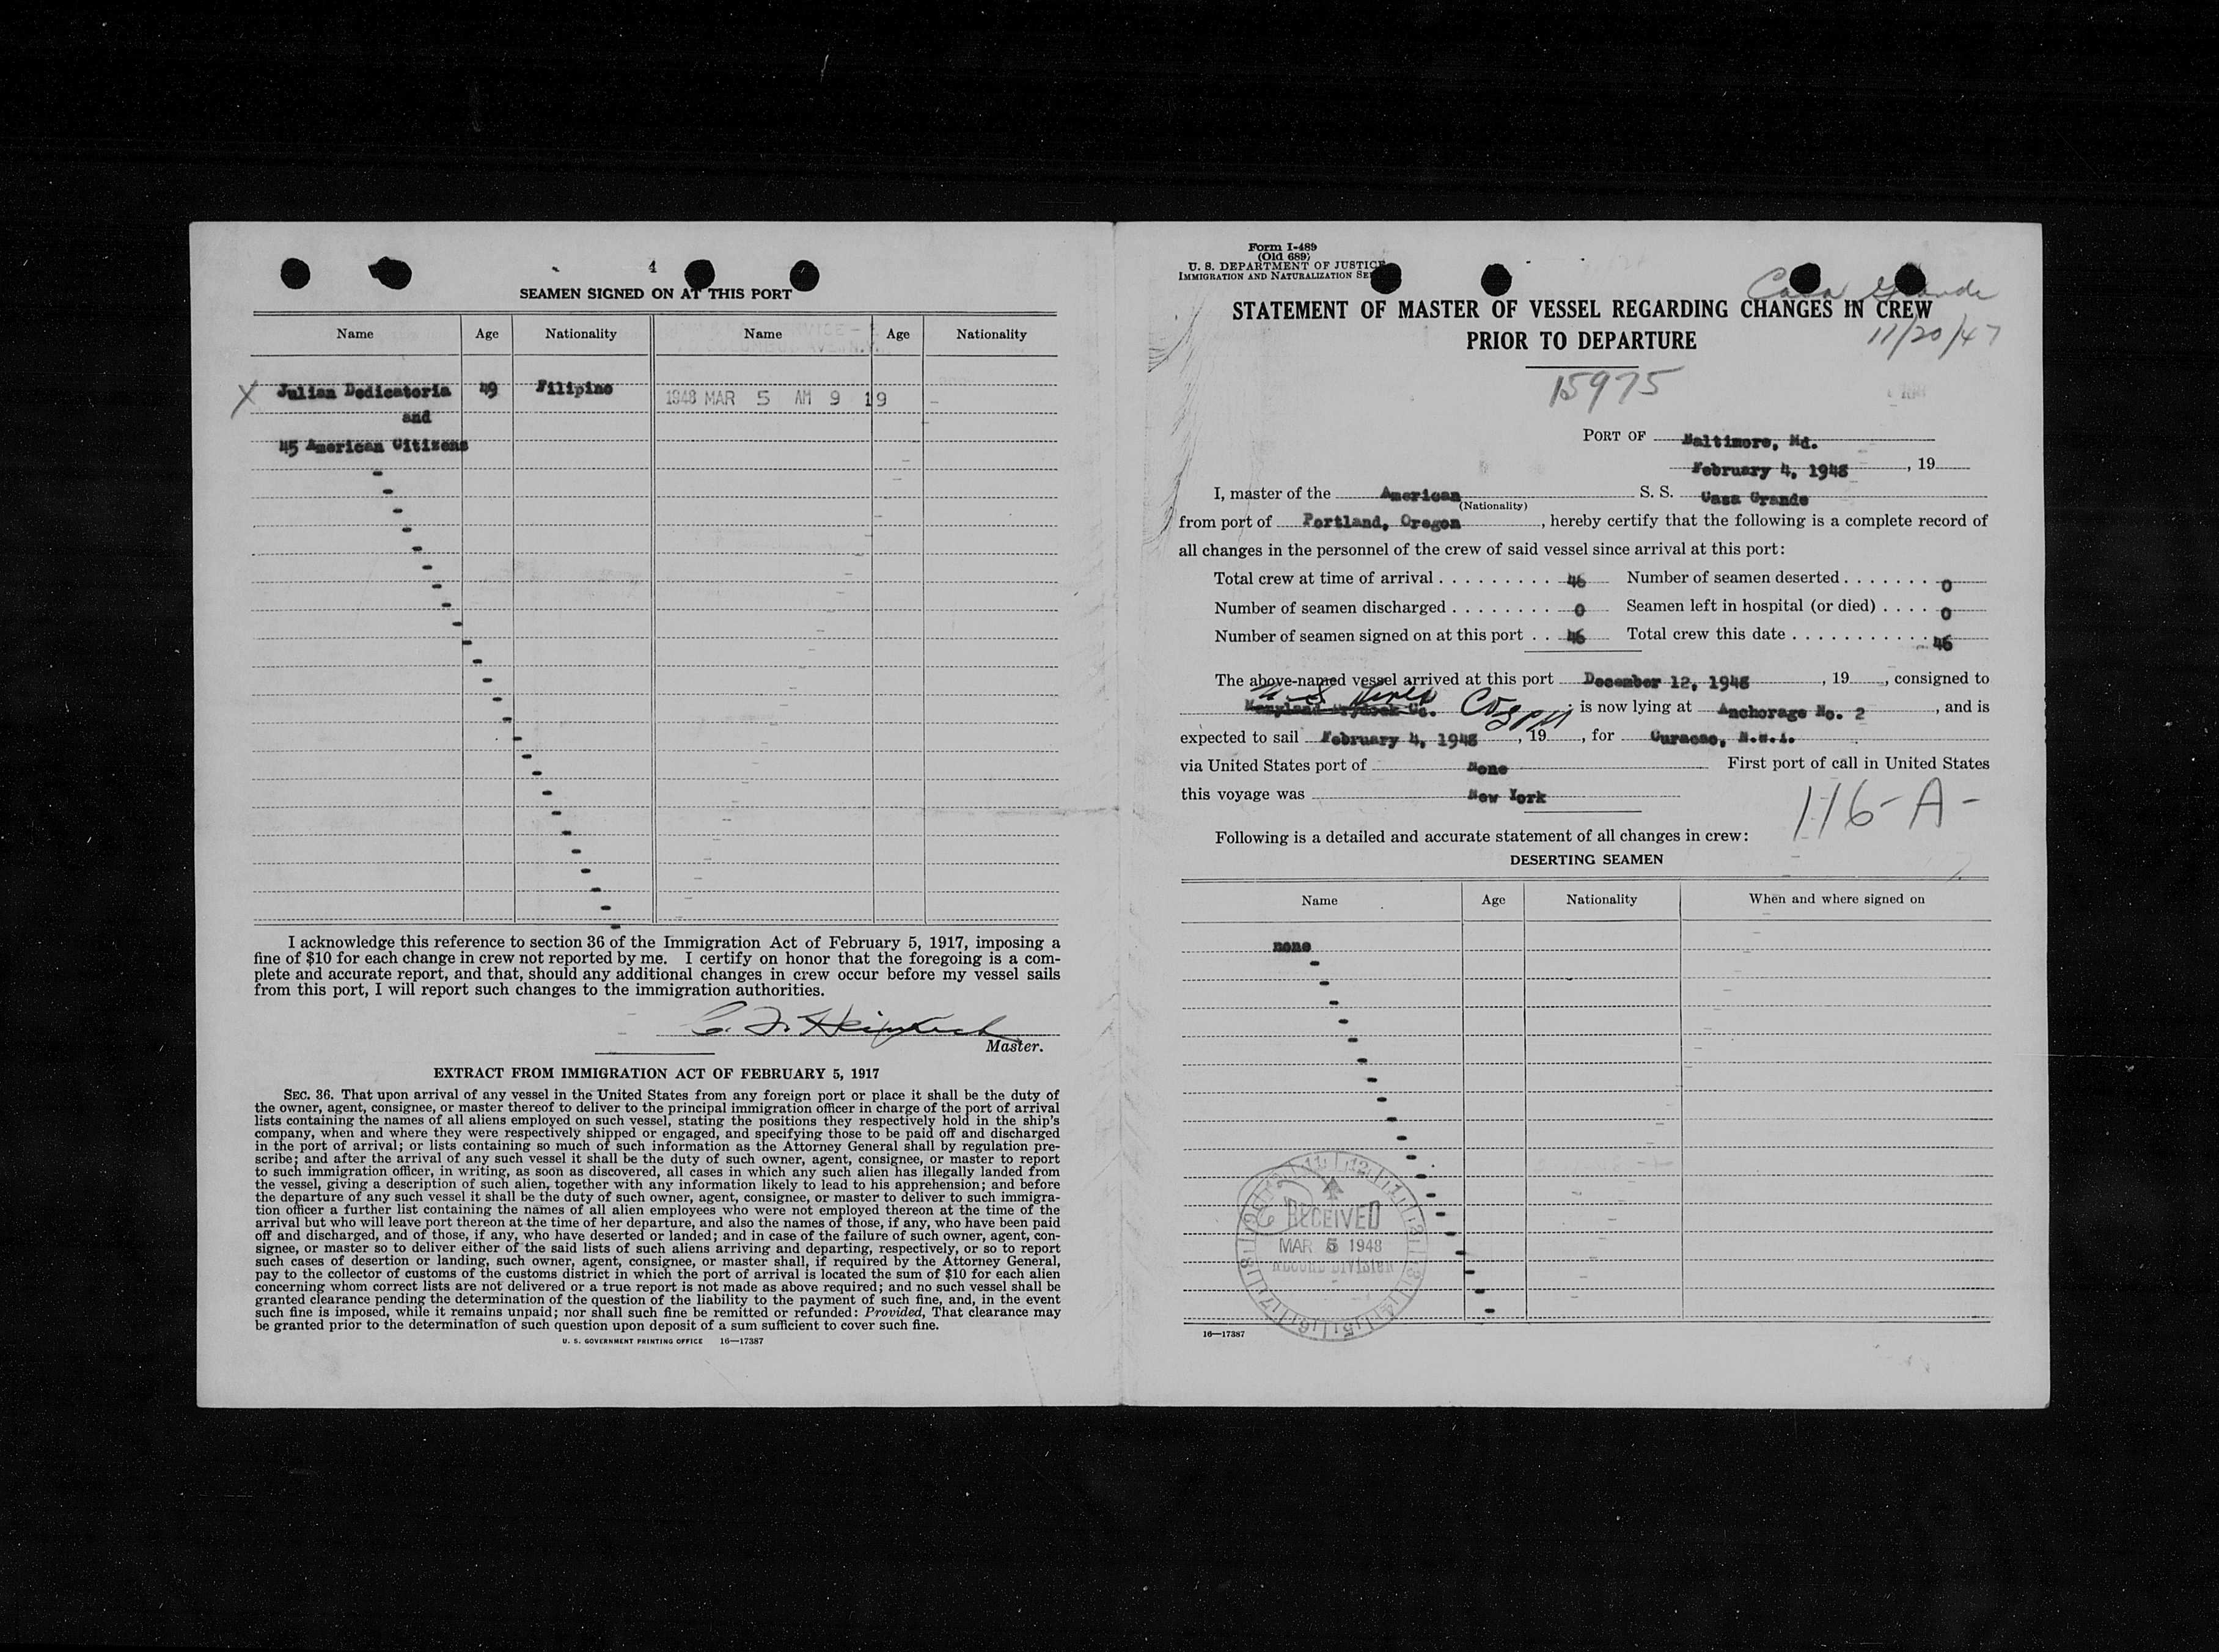 4
SEAMEN SIGNED ON AT THIS PORT
Name Age Nationality Name Age Nationality
X Julian Dedicatoria 49 Filipino 1948 MAR 5 AM 9 19
and
45 American Citizens
I acknowledge this reference to section 36 of the Immigration Act of February 5, 1917, imposing a
fine of $10 for each change in crew not reported by me. I certify on honor that the foregoing is a com-
plete and accurate report, and that, should any additional changes in crew occur before my vessel sails
from this port, I will report such changes to the immigration authorities.
Master.
EXTRACT FROM IMMIGRATION ACT OF FEBRUARY 5, 1917
SEC. 36. That upon arrival of any vessel in the United States from any foreign port or place it shall be the duty of
the owner, agent, consignee, or master thereof to deliver to the principal immigration officer in charge of the port of arrival
lists containing the names of all aliens employed on such vessel, stating the positions they respectively hold in the ship's
company, when and where they were respectively shipped or engaged, and specifying those to be paid off and discharged
in the port of arrival; or lists containing so much of such information as the Attorney General shall by regulation pre-
scribe; and after the arrival of any such vessel it shall be the duty of such owner, agent, consignee, or master to report
to such immigration officer, in writing, as soon as discovered, all cases in which any such alien has illegally landed from
the vessel, giving a description of such alien, together with any information likely to lead to his apprehension; and before
the departure of any such vessel it shall be the duty of such owner, agent, consignee, or master to deliver to such immigra-
tion officer a further list containing the names of all alien employees who were not employed thereon at the time of the
arrival but who will leave port thereon at the time of her departure, and also the names of those, if any, who have been paid
off and discharged, and of those, if any, who have deserted or landed; and in case of the failure of such owner, agent, con-
signee, or master so to deliver either of the said lists of such aliens arriving and departing, respectively, or so to report
such cases of desertion or landing, such owner, agent, consignee, or master shall, if required by the Attorney General,
pay to the collector of customs of the customs district in which the port of arrival is located the sum of $10 for each alien
concerning whom correct lists are not delivered or a true report is not made as above required; and no such vessel shall be
granted clearance pending the determination of the question of the liability to the payment of such fine, and, in the event
such fine is imposed, while it remains unpaid; nor shall such fine be remitted or refunded: Provided, That clearance may
be granted prior to the determination of such question upon deposit of a sum sufficient to cover such fine.
U. S. GOVERNMENT PRINTING OFFICE 16—17387
Form I-489
(Old 689)
U. S. DEPARTMENT OF JUSTICE
IMMIGRATION AND NATURALIZATION SE
Casa Grande
STATEMENT OF MASTER OF VESSEL REGARDING CHANGES IN CREW
PRIOR TO DEPARTURE
11/20/47
15975
PORT OF Baltimore, Md.
February 4, 1948, 19
I, master of the American S. S. Casa Grande
(Nationality)
from port of Portland, Oregon, hereby certify that the following is a complete record of
all changes in the personnel of the crew of said vessel since arrival at this port:
Total crew at time of arrival 46 Number of seamen deserted 0
Number of seamen discharged 0 Seamen left in hospital (or died) 0
Number of seamen signed on at this port 46 Total crew this date 46
The above-named vessel arrived at this port December 12, 1948, 19, consigned to
U S Lines
Maryland Drydock Co. Co is now lying at Anchorage No. 2, and is
expected to sail February 4, 1948, 19, for Curacao, N.W.I.
via United States port of None First port of call in United States
this voyage was New York
116-A-
Following is a detailed and accurate statement of all changes in crew:
DESERTING SEAMEN
Name Age Nationality When and where signed on
none
RECEIVED
MAR 5 1948
RECORD DIVISION
16—17387